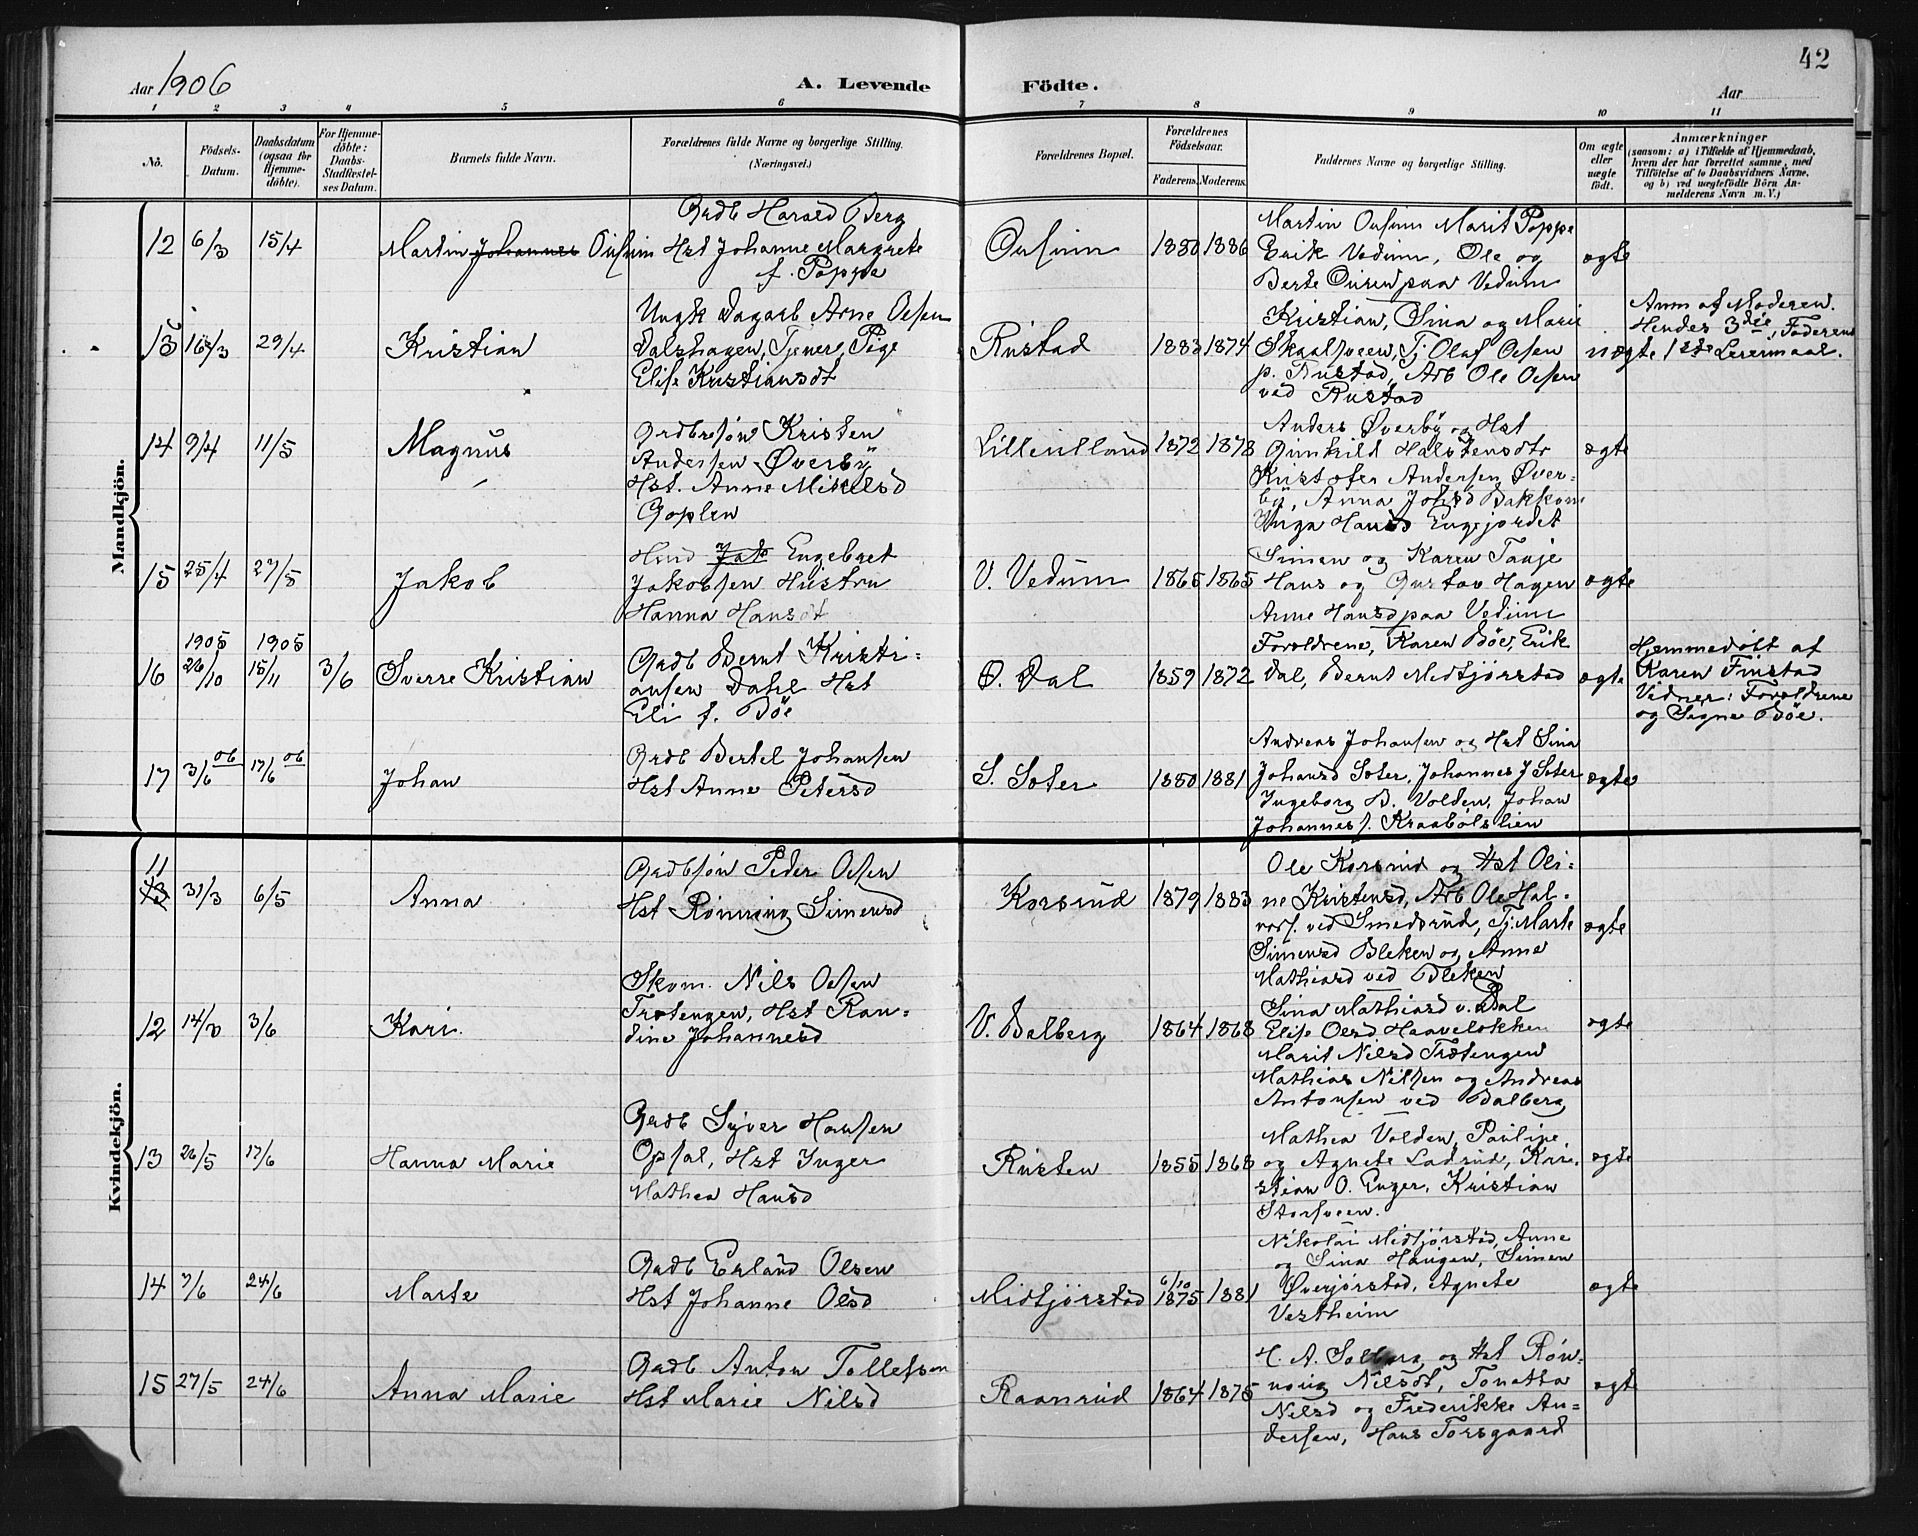 42
Aar 1906
A. Levende
Födte.
Aar
1 2 3 4 5 6 7 8 9 10 11
No.
Födsels-Datum.
Daabsdatum (ogsaa for Hjemme-döbte).
For Hjemme-döbte: Daabs-Stadfæstel-ses Datum.
Barnets fulde Navn.
Forældrenes fulde Navne og borgerlige Stilling.
(Næringsvei.)
Forældrenes Bopæl.
Forældrenes Födselsaar.
Faderens. Moderens.
Faddernes Navne og borgerlige Stilling.
Om ægte eller uægte födt.
Anmærkninger
(saasom: a) i Tilfælde af Hjemmedaab,
hvem der har forrettet samme, med
Tilföielse af to Daabsvidners Navne,
og b) ved uægtefödte Börn An-
melderens Navn m. V.)
Mandkjön.
12 6/3 15/4
Martin Johannes Ousum
Grdb Harald Berg
Hst Johanne Margrete
f. Poppe
Ousum 1880 1886
Martin Ousum Marit Poppe
Erik Vedum, Ole og
Berte Ouren paa Vedum
ægte
13 16/3 29/4
Kristian
Ungk Dagarb Arne Olsen
Dalshagen, Tjener Pige
Elise Kristiansdt
Rustad 1883 1874
Kristian, Sina og Marie
Skaalsveen, Tj Olaf Olsen
p. Rustad, Arb Ole Olsen
ved Rustad
uægte
Anm af Moderen.
Hendes 3die, Faderens
1ste Leiermaal.
14 9/4 11/5
Magnus
Grdbrsøn Kristen
Andersen Øverby
Hst. Anne Mikelsd
Goplen
Lillerilland 1872 1873
Anders Øverby og Hst
Gunhild Halstensdtr
Kristofer Andersen Øver-
by, Anna Johsd Bakkom
Inga Hansd Engejordet
ægte
15 25/4 27/5
Jakob
Hmd Jak Engebret
Jakobsen Hustru
Hanna Hansdt
V. Vedum 1865 1865
Simen og Karen Tanje
Hans og Gustav Hagen
Anne Hansd paa Vedum
ægte
1905 1905
16 26/10 15/11 3/6
Sverre Kristian
Grdb Bernt Kristi-
ansen Dahl Hst
Eli f. Böe
Ø. Dal 1859 1872
Foroldrene, Karen Böe, Erik
Dal, Bernt Midtjørstad
ægte
Hjemmedøbt af
Karen Finstad
Vidner: Foroldrene
og Signe Böe.
17 3/6 06 17/6 06
Johan
Grdb Bertel Johansen
Hst Anne Petersd
S. Soter 1880 1881
Andreas Johansen og Hst Sina
Johansd Soter, Johannes J Soter
Ingeborg B. Volden, Johan
Johanness. Kraabølslien
ægte
Kvindekjön.
11
13 31/3 6/5
Anna
Grdbsøn Peder Olsen
Hst Rønnaug Simensd
Korsrud 1879 1883
Ole Korsrud og Hst Oli-
ne Kristensd, Arb Ole Hal-
vors. ved Smedsrud, Tj. Marte
Simensd Bleken og Anne
Mathiasd ved Bleken
ægte
12 14/3 3/6
Kari.
Skom. Nils Olsen
Trotengen, Hst Ran-
dine Johannesd
V. Balberg 1864 1868
Sina Mathiasd v. Bal
Elise Olsd Haaveløkken
Marit Nilsd Trotengen
Mathias Nilsen og Andreas
Antonsen ved Balberg
ægte
13 26/5 17/6
Hanna Marie
Grdb Syver Hansen
Opsal, Hst Inger
Mathea Hansd
Rusten 1855 1868
Mathea Volden, Pauline
og Agnete Ladsrud, Kri-
stian O. Enger, Kristian
Storsveen.
ægte
14 7/6 24/6
Marte
Grdb Erland Olsen
Hst Johanne Olsd
Midtjørstad 6/10 1875 1881
Nikolai Midtjørstad, Anne
og Sina Haugen, Simen
Øverjørstad, Agnete
Vestheim
ægte
15 27/5 24/6
Anna Marie
Grdb Anton Tollefsen
Hst Marie Nilsd
Raanrud 1864 1875
H. A. Solberg og Hst Røn-
naug Nilsdt, Tonetta
Nilsd og Frederikke An-
dersen, Hans Torsgaard
ægte